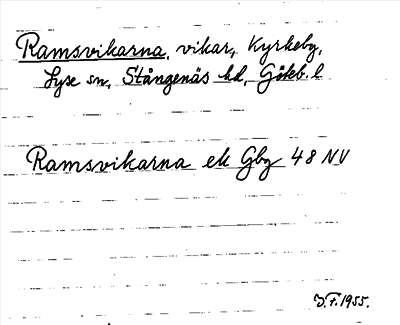 Ramsvikarna, vikar, Kyrkeby,
Lyse sn, Stångenäs hd, Göteb. l
Ramsvikarna ek Gbg 48 NV
J.F. 1955.